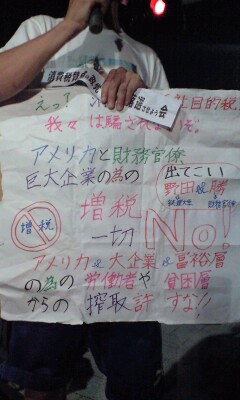 消費税増税
会
えっ?
社目的税
我々は騙されないぞ。
アメリカと財務官僚
巨大企業の為の
出てこい
野田&勝
増税
増税
一切
No!
アメリカ&大企業&富裕層
の為の労働者や貧困層
からの搾取許すな!!